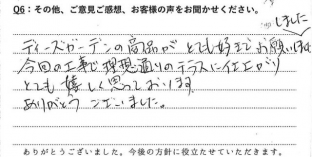 Q6：その他、ご意見ご感想、お客様の声をお聞かせください。
しました
ディーズガーデンの商品が とても好きでお願い
今回の工事で理想通りのテラスに仕上がり
とても 嬉しく思っております。
ありがとう ございました。
ありがとうございました。今後の方針に役立たせていただきます。